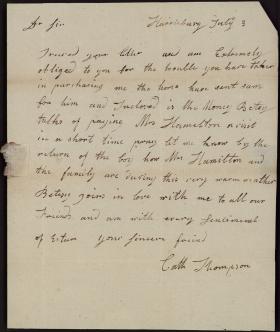 Dr Sir Harrisburg July 3
I recived your letter and am Extremely
obliged to you for the trouble you have taken
in purchasing me the horse have sent sam
for him and Inclosed is the Money Betsy
talks of paying Mrs Hamilton a visit
in a short time pray let me know by the
return of the boy how Mrs Hamilton and
the family are during this very warm weather
Betsy joins in love with me to all our
Friends and am with every Sentiment
of Esteem your sincere friend
Cath Thompson